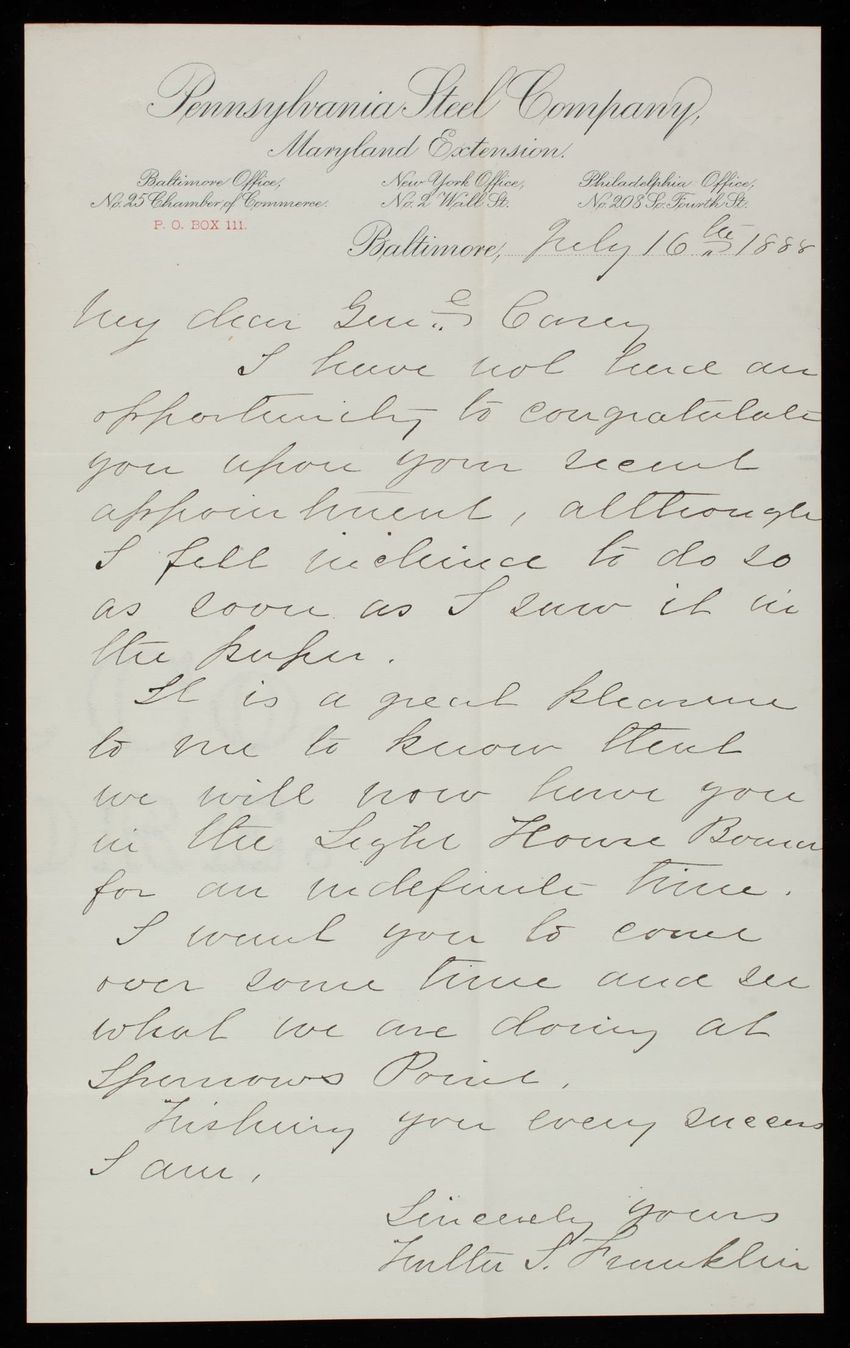 Pennsylvania Steel Company,
Maryland Extension.
Baltimore Office, New York Office, Philadelphia Office,
No. 25 Chamber of Commerce. No. 2 Wall St. No. 208 So. Fourth St.
P. O. BOX 111.
Baltimore, July 16th 1888
My dear Genl Casey
I have not had an
opportunity to congratulate
you upon your recent
appointment, although
I felt inclined to do so
as soon as I saw it in
the paper.
It is a great pleasure
to me to know that
we will now have you
in the Light House Board
for an indefinite time.
I want you to come
over some time and see
what we are doing at
Sparrows Point.
Wishing you every success
I am,
Sincerely yours
Walter S. Franklin